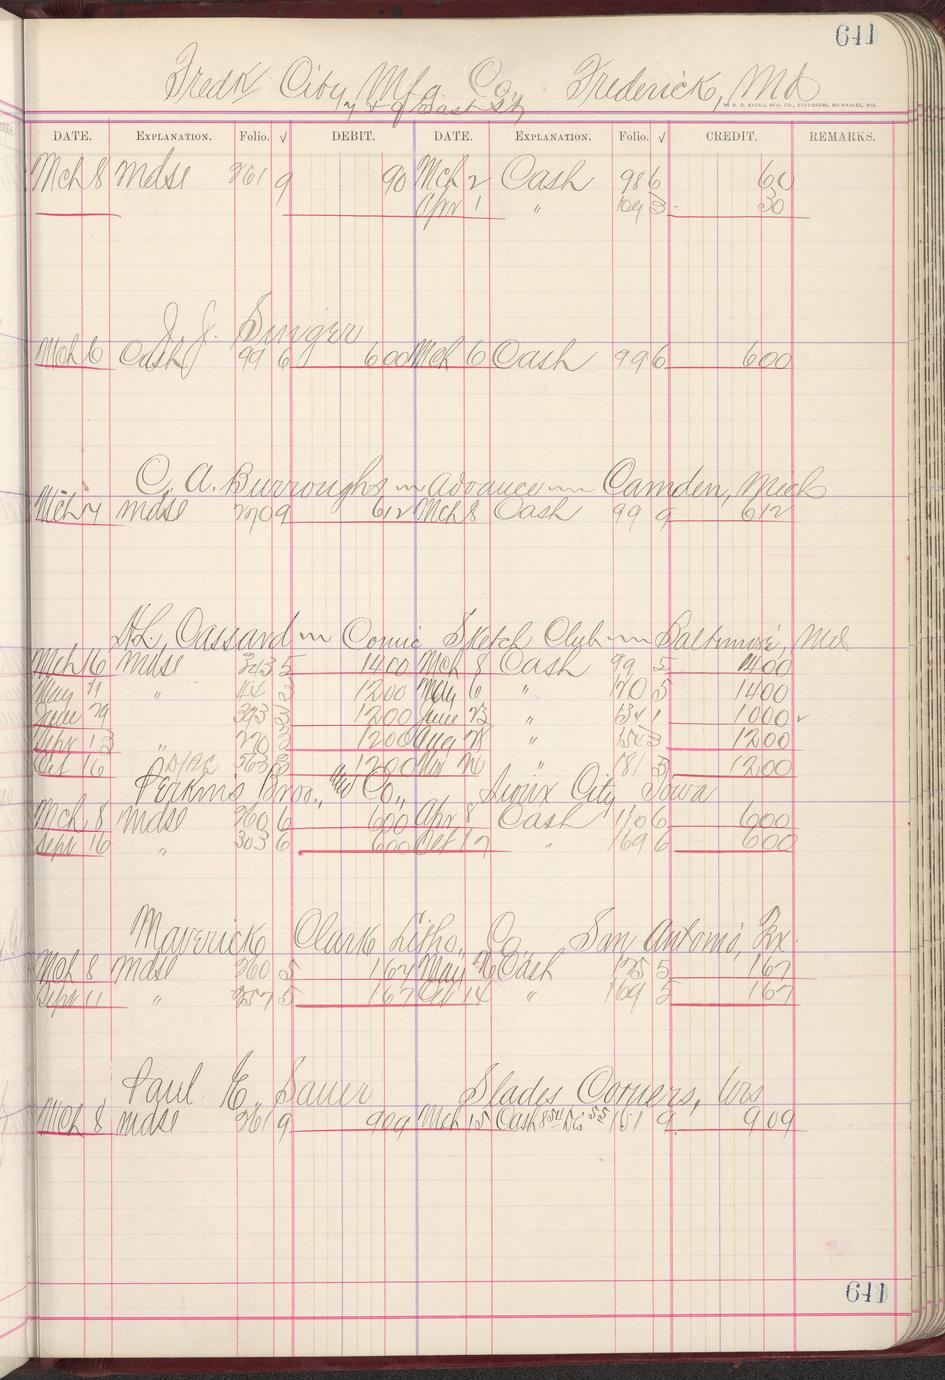 641
Fredk City Mfg. Co., Frederick, Md
7 + 9 East St
THE H. G. RAZALL MFG. CO., STATIONERS, MILWAUKEE, WIS.
DATE. EXPLANATION. Folio. √ DEBIT. DATE. EXPLANATION. Folio. √ CREDIT. REMARKS.
Mch 8 mdse 261 9 90 Mch 2 Cash 98 6 60
Apr 1 " 109 3 30
J. J. Singer
Mch 6 Cash 99 6 600 Mch 6 Cash 99 6 600
C. A. Burroughs in advance Camden, Mich
Mch 7 mdse 270 9 612 Mch 8 Cash 99 9 612
H. L. Cassard Comic Sketch Club Baltimore, Md
Mch 16 mdse 343 5 1400 Mch 8 Cash 99 5 1400
May 11 " 44 3 1200 May 6 " 120 5 1400
June 29 393 3 1200 June 23 " 134 1 1000 ✓
Sept 13 " 270 3 1200 Aug 28 " 154 3 1200
Oct 16 563 3 1200 Nov 20 " 181 3 1200
Perkins Bros., Co., Sioux City Iowa
Mch 8 mdse 260 6 600 Apr 8 Cash 110 6 600
Sept 16 " 303 6 600 Oct 17 " 169 6 600
Maverick Clark Litho., Co San Antonio, Tx
Mch 8 mdse 260 5 167 May 26 Cash 125 5 167
Sept 11 " 257 5 167 14 " 169 5 167
Paul E. Sauer Slades Corners, Wis
Mch 8 mdse 261 9 909 Mch 15 Cash 854 Dis 55 101 9 909
641